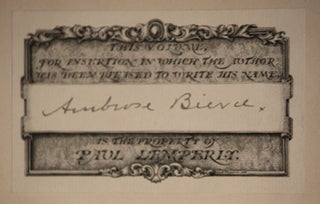 THIS VOLUME,
FOR INSERTION IN WHICH THE AUTHOR
HAS BEEN PLEASED TO WRITE HIS NAME,
Ambrose Bierce.
IS THE PROPERTY OF
PAUL LEMPERLY.